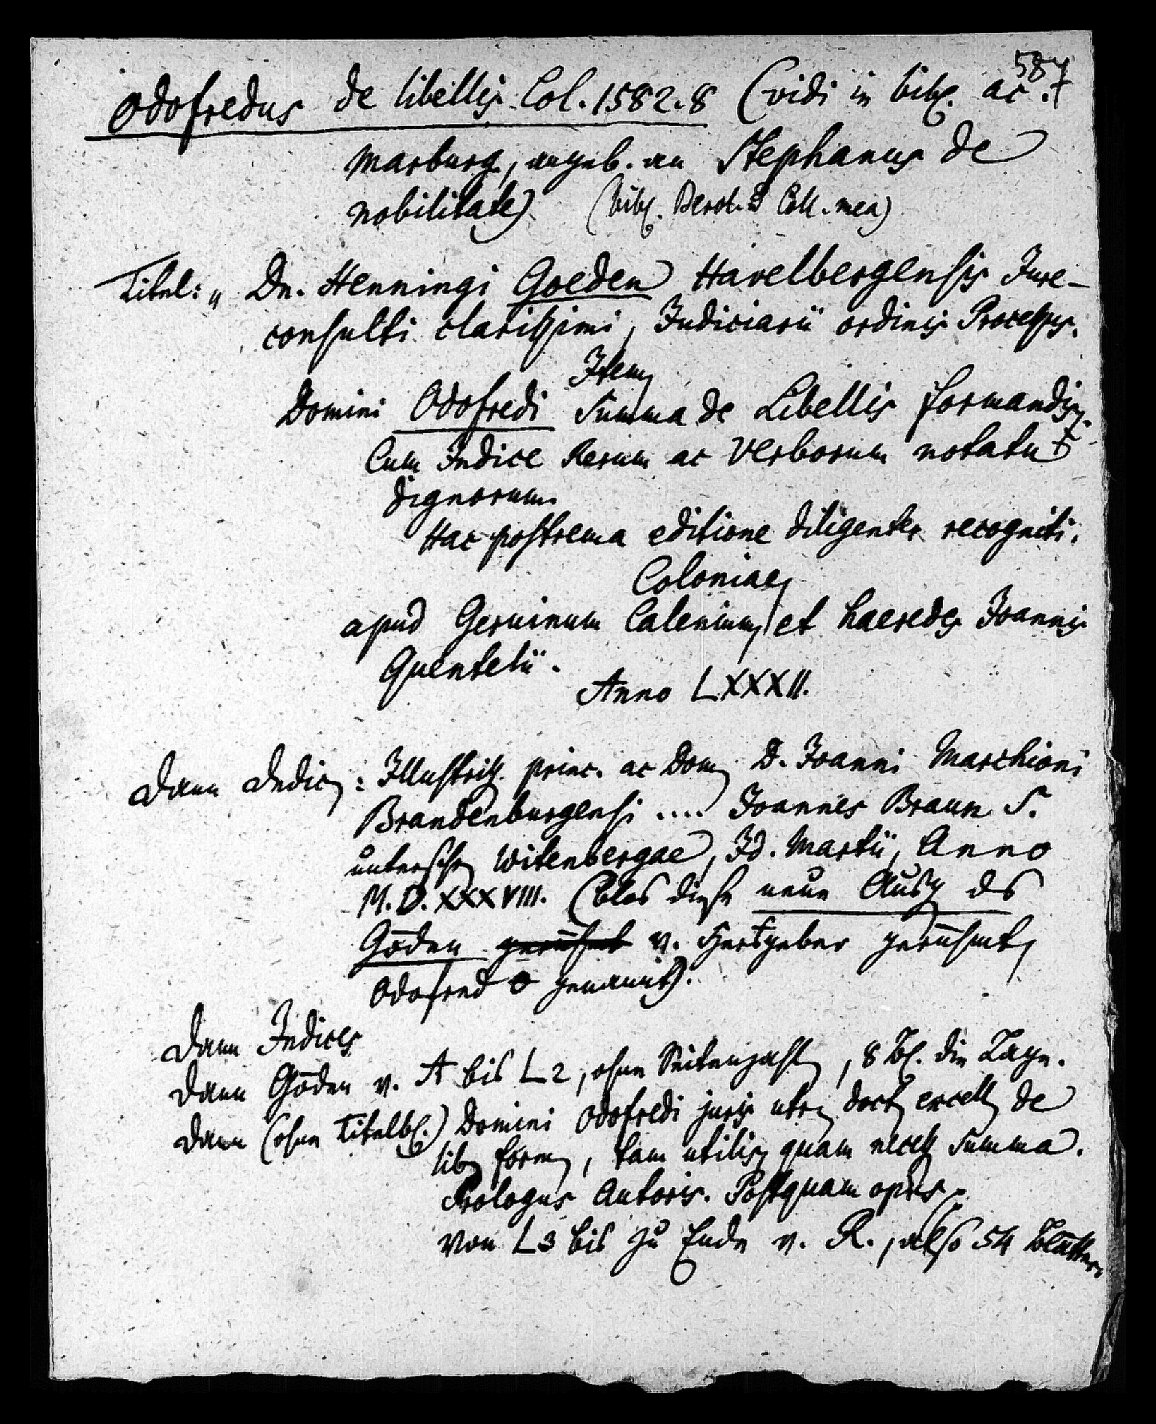 587
Odofredus de libellis Col. 1582. 8 (vidi in bibl. ac.
Marburg, angeb. an Stephanus de
nobilitate) (bibl. Berol. & Coll. mea)
Titel: „ Dn. Henningi Goeden Havelbergensis Jure-
consulti clarissimi, Judiciarii ordinis Processus.
Item
Domini Odofredi Summa de Libellis formandis,
Cum Indice Rerum ac Verborum notatu
dignorum.
Hac postrema editione diligenter recogniti.
Coloniae
apud Geruinum Calenium et haeredes Joannis
Quentelii.
Anno LXXXII.
Dann Dedic.: Illustriss. princ. ac Dom D. Joanni Marchioni
Brandenburgensi .... Joannes Braun S.
unterschr Witenbergae, Id. Martii, Anno
M.D.XXXVIII. (blos diese neue Ausg des
Göden gerühmt v. Herausgeber gerühmt,
Odofred 0 genannt).
Dann Indices
Dann Göden v. A bis L2, ohne Seitenzahl, 8 Bl. die Lage.
Dann (ohne Titelbl.) Domini Odofredi juris utr doct excell de
lib form, tam utilis quam necess Summa.
Prologus Autoris. Postquam opus
von L3 bis zu Ende v. R., also 54 Blätter.